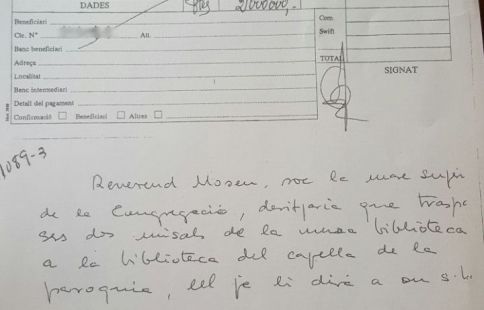 DADES
Ptes 2000000,-
Beneficiari
Cte. Nº Att.
Banc beneficiari
Adreça
Localitat
Banc intermediari
Detall del pagament
Confirmació Beneficiari Altres
Com
Swift
TOTAL
SIGNAT
1089-3
Reverend Mosen, soc la mare supe
de la Congregació, desitjaria que traspa
ses dos misals de la meva biblioteca
a la biblioteca del capella de la
paroquia, ell je li dirà a on s.h.